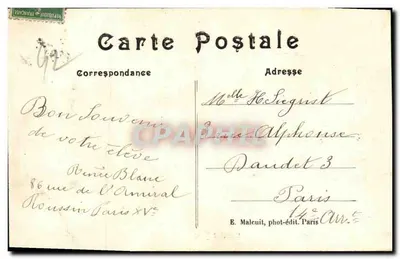 Carte Postale
Correspondance
Adresse
92
Bon Souvenir
de votre élève
Renée Blanc
86 rue de l'Amiral
Roussin Paris XVe
Melle H. Siegrist
rue Alphonse
Daudet 3
Paris
14e Arrt
E. Malcuit, phot-édit. Paris
CPAPHIL